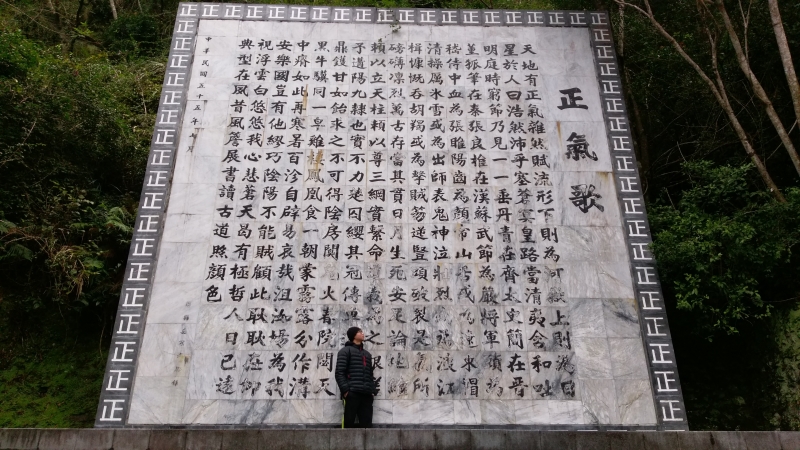 正氣歌
天地有正氣雜然賦流形下則為河嶽上則為日
星於人曰浩然沛乎塞蒼冥皇路當清夷含和吐
明庭時窮節乃見一一垂丹青在齊太史簡在晉
董狐筆在秦張良椎在漢蘇武節為嚴將軍頭為
嵇侍中血為張睢陽齒為顏常山舌或為遼東帽
清操厲冰雪或為出師表鬼神泣壯烈或為渡江
楫慷慨吞胡羯或為擊賊笏逆豎頭破裂是氣所
磅礡凜烈萬古存當其貫日月生死安足論地維
賴以立天柱賴以尊三綱實繫命道義為之根嗟
予遘陽九隸也實不力楚囚纓其冠傳車
鼎鑊甘如飴求之不可得陰房闃鬼火春院閟天
黑牛驥同一皁雞棲鳳凰食一朝蒙霧露分作溝
中瘠如此再寒暑百沴自辟易哀哉沮洳場為我
安樂國豈有他繆巧陰陽不能賊顧此耿耿在仰
視浮雲白悠悠我心悲蒼天曷有極哲人日已遠
典型在夙昔風簷展書讀古道照顏色
中華民國五十五年月